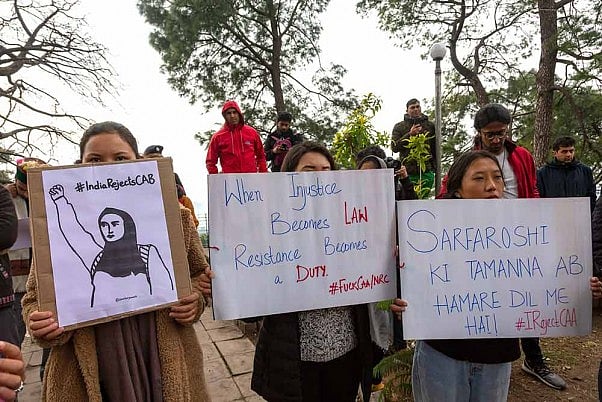 #IndiaRejectsCAB
When Injustice
Becomes LAW
Resistance Becomes
a DUTY.
#FUCKCAA/NRC
SARFAROSHI
KI TAMANNA AB
HAMARE DIL ME
HAI! #IRejectCAA